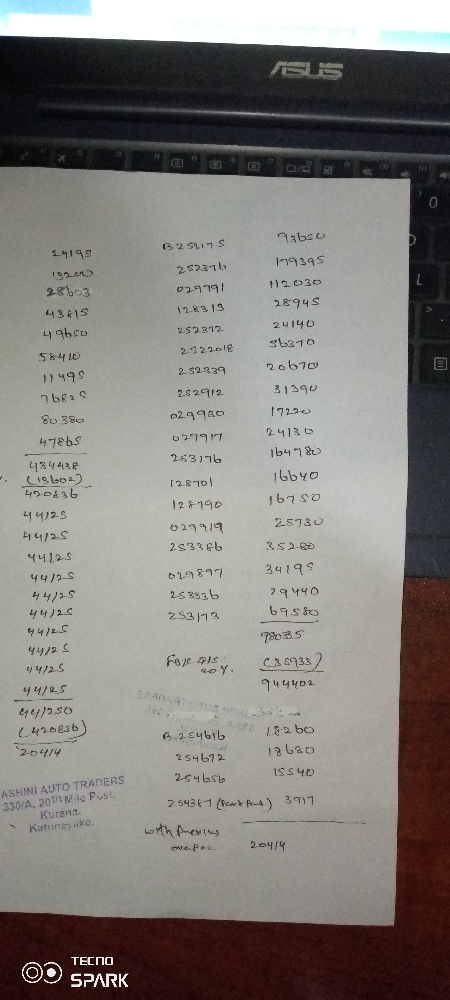 ASUS
24195 B253175 93650
13200 252376 179395
28603 029791 112030
43815 128313 28945
49650 252372 24140
58410 2522018 36370
11495 252339 20670
76825 252912 31390
80380 029930 17220
47865 027917 24130
434438 253176 164780
(13602) 128701 16640
420836 128790 16750
44125 029919 25730
44125 253386 35280
44125 029897 34195
44125 253336 29440
44125 253173 69580
44125 980335
44125 20%. (35933)
44125 944402
44125
44125
441250 B.254616 18260
(420836) 254672 18680
20414 254656 15540
254387 (Part Paid) 3917
with Previous
20414
ASHINI AUTO TRADERS
330/A, 20th Mile Post,
Kurana,
Katunayake.
TECNO
SPARK